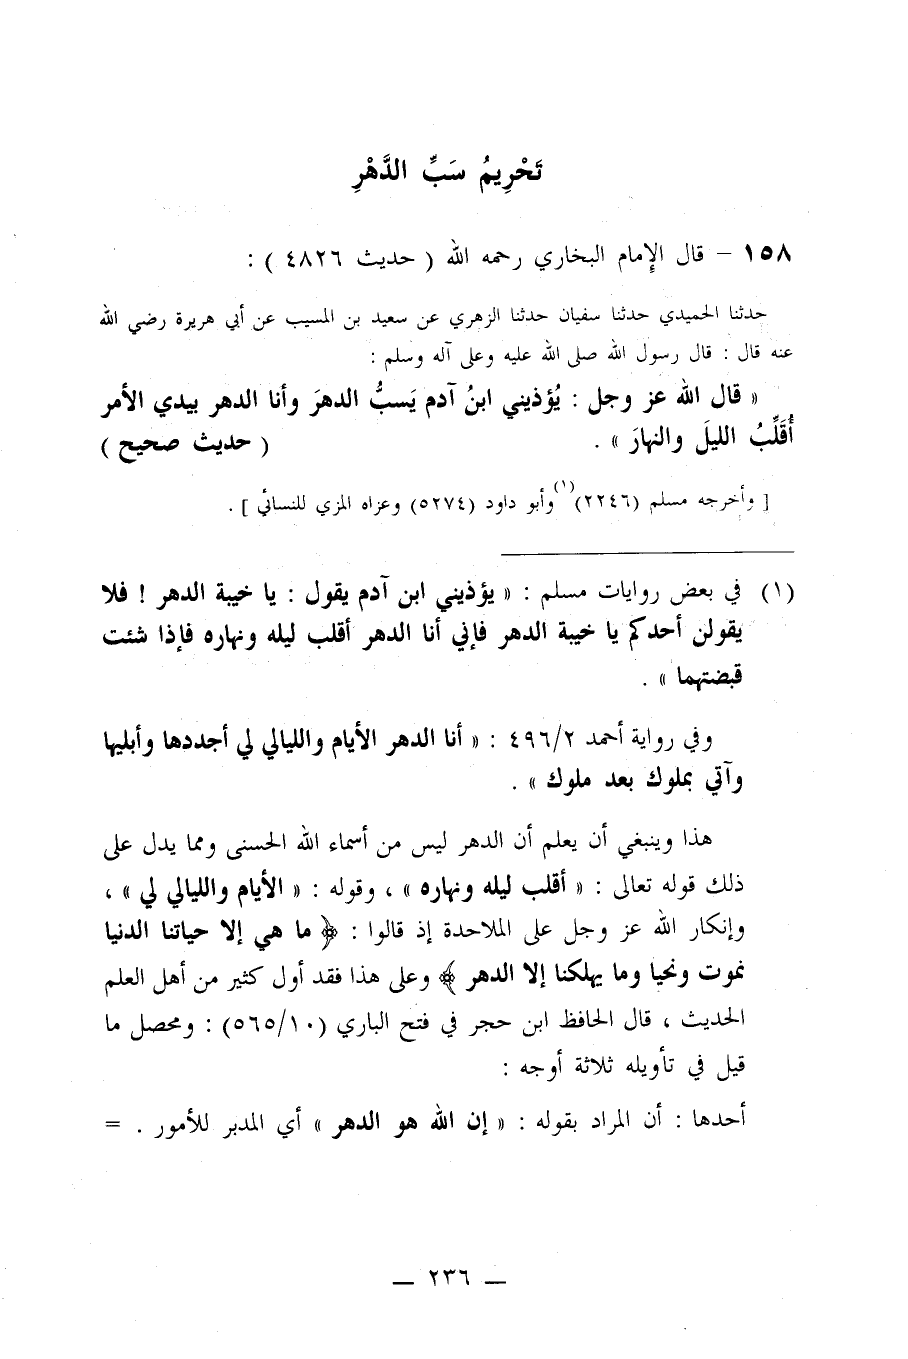 تَحْرِيمُ سَبِّ الدَّهْرِ
١٥٨ – قال الإِمام البخاري رحمه الله ( حديث ٤٨٢٦ ) :
حدثنا الحميدي حدثنا سفيان حدثنا الزهري عن سعيد بن المسيب عن أبي هريرة رضي الله
عنه قال : قال رسول الله صلى الله عليه وعلى آله وسلم :
« قال الله عز وجل : يُؤذيني ابنُ آدم يَسبُّ الدهرَ وأنا الدهر بيدي الأمر
أُقَلِّبُ الليلَ والنهارَ » . ( حديث صحيح )
[ وأخرجه مسلم (٢٢٤٦)(١) وأبو داود (٥٢٧٤) وعزاه المزي للنسائي ] .
(١) في بعض روايات مسلم : « يؤذيني ابن آدم يقول : يا خيبة الدهر ! فلا
يقولن أحدكم يا خيبة الدهر فإني أنا الدهر أقلب ليله ونهاره فإذا شئت
قبضتهما » .
وفي رواية أحمد ٤٩٦/٢ : « أنا الدهر الأيام والليالي لي أجددها وأبليها
وآتي بملوك بعد ملوك » .
هذا وينبغي أن يعلم أن الدهر ليس من أسماء الله الحسنى ومما يدل على
ذلك قوله تعالى : « أقلب ليله ونهاره » ، وقوله : « الأيام والليالي لي » ،
وإنكار الله عز وجل على الملاحدة إذ قالوا : ﴿ ما هي إلا حياتنا الدنيا
نموت ونحيا وما يهلكنا إلا الدهر ﴾ وعلى هذا فقد أول كثير من أهل العلم
الحديث ، قال الحافظ ابن حجر في فتح الباري (٥٦٥/١٠) : ومحصل ما
قيل في تأويله ثلاثة أوجه :
أحدها : أن المراد بقوله : « إن الله هو الدهر » أي المدبر للأمور . =
— ٢٣٦ —